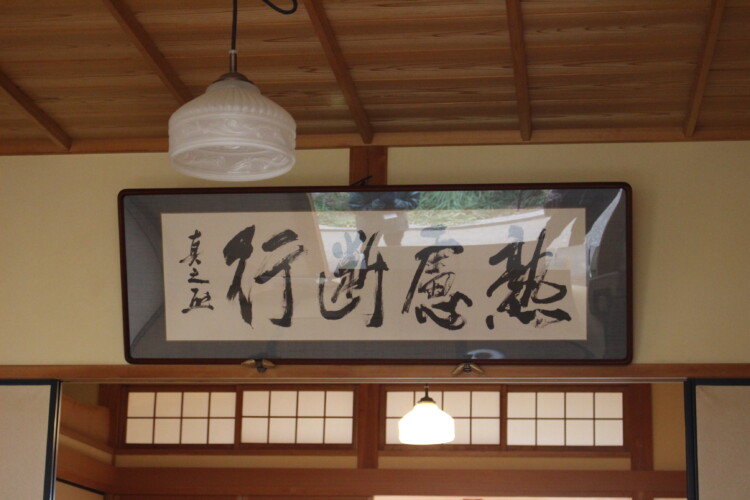 熟慮断行
真之丞